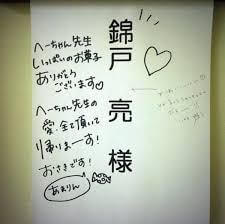 へーちゃん先生
いっぱいのお菓子
ありがとう
ございます♥
へーちゃん先生の
愛、全て頂いて
帰りまーす!
おさきです!
あぁりん
錦戸 亮 様